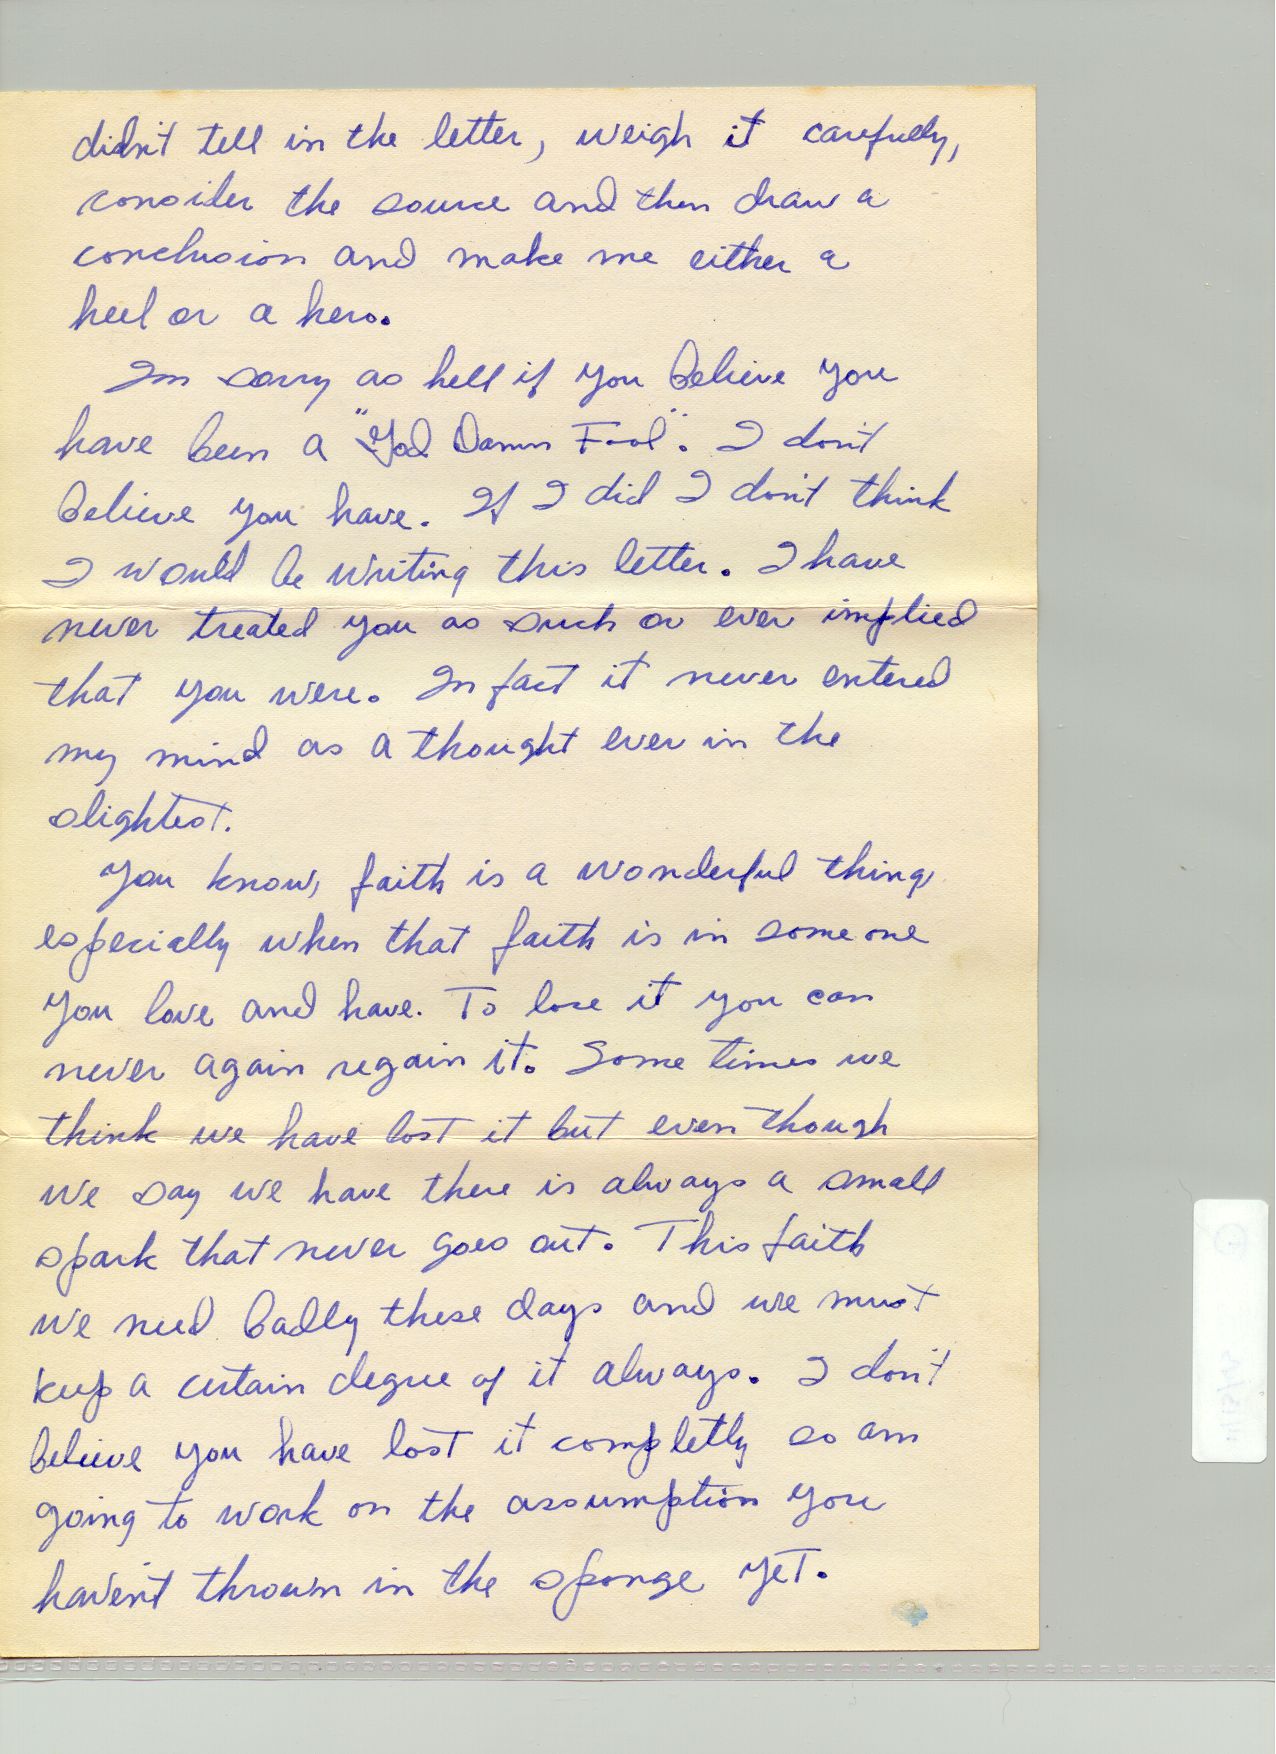 didn't tell in the letter, weigh it carefully,
consider the source and then draw a
conclusion and make me either a
heel or a hero.
Im sorry as hell if you believe you
have been a "God Damn Fool". I don't
believe you have. If I did I don't think
I would be writing this letter. I have
never treated you as such or ever implied
that you were. In fact it never entered
my mind as a thought ever in the
slightest.
You know, faith is a wonderful thing
especially when that faith is in some one
you love and have. To lose it you can
never again regain it. Some times we
think we have lost it but even though
we say we have there is always a small
spark that never goes out. This faith
we need badly these days and we must
keep a certain degree of it always. I don't
believe you have lost it completly so am
going to work on the assumption you
haven't thrown in the sponge yet.